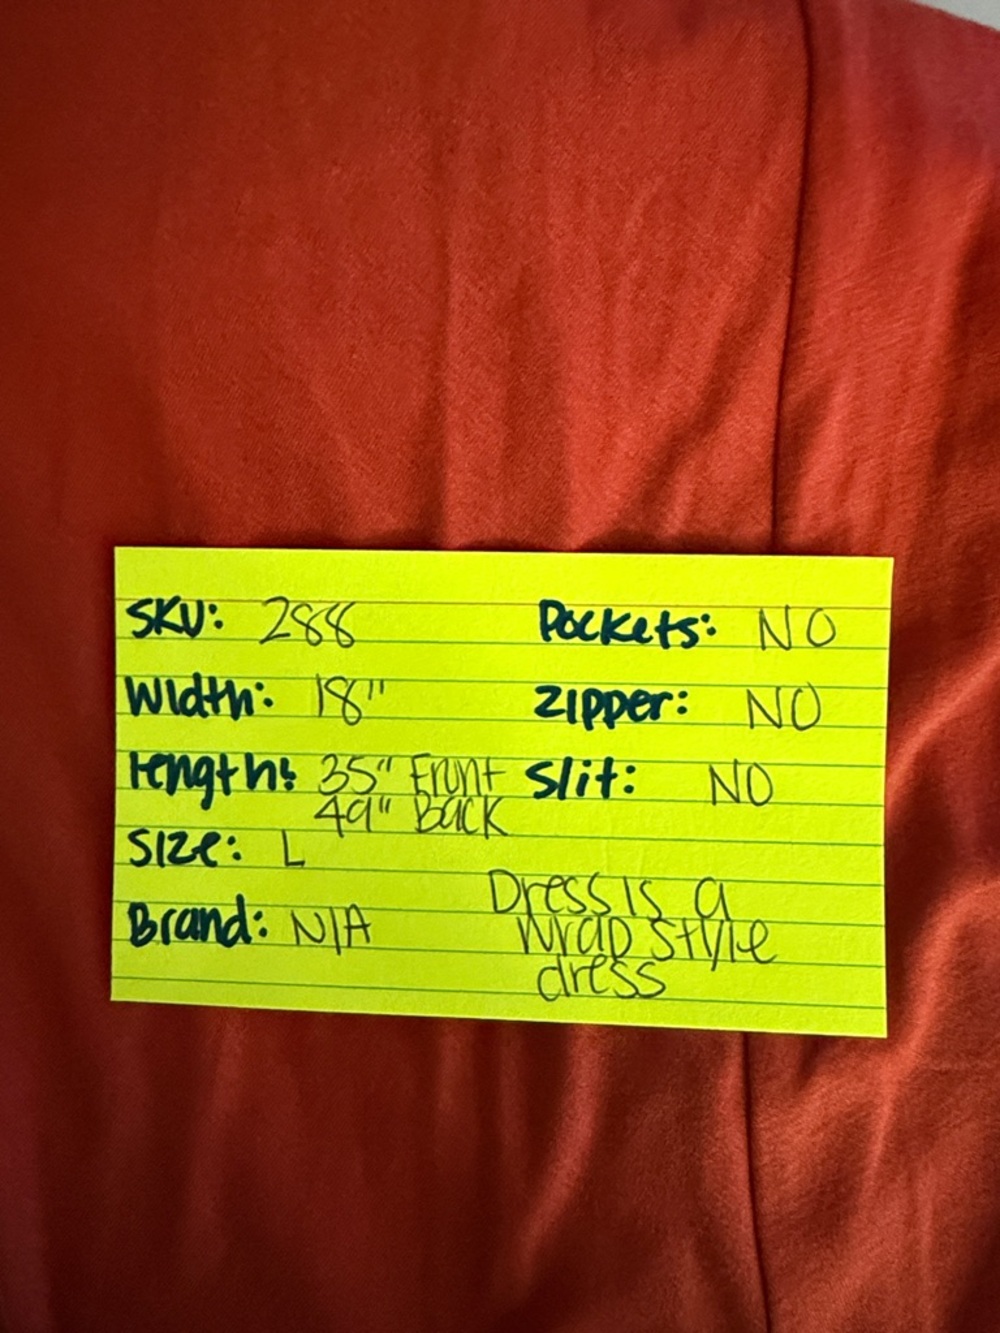 SKU: 288
Width: 18"
Length: 35" Front
49" Back
Size: L
Brand: N/A
Pockets: NO
Zipper: NO
Slit: NO
Dress is a
wrap style
dress